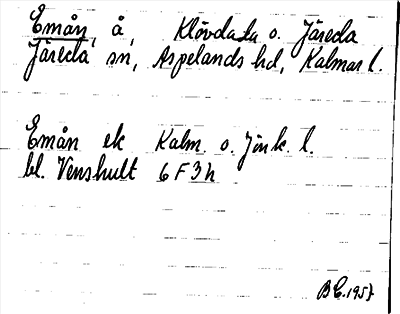 Emån, å, Klövdala o. Järeda
Järeda sn, Aspelands hd, Kalmar l.
Emån ek Kalm. o. Jönk. l.
bl. Venshult 6F3h
B E. 1957